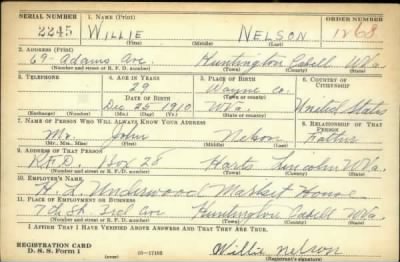 SERIAL NUMBER 1. NAME (Print) ORDER NUMBER
2245 WILLIE NELSON 1268
(First) (Middle) (Last)
2. ADDRESS (Print)
69 Adams Ave. Huntington Cabell W.Va.
(Number and street or R. F. D. number) (Town) (County) (State)
3. TELEPHONE 4. AGE IN YEARS 5. PLACE OF BIRTH 6. COUNTRY OF CITIZENSHIP
29 Wayne Co.
DATE OF BIRTH (Town or county)
Dec 25 1910 W.Va. United States
(Exchange) (Number) (Mo.) (Day) (Yr.) (State or country)
7. NAME OF PERSON WHO WILL ALWAYS KNOW YOUR ADDRESS 8. RELATIONSHIP OF THAT PERSON
Mr. John Nelson Father
(Mr., Mrs., Miss) (First) (Middle) (Last)
9. ADDRESS OF THAT PERSON
R.F.D. Box 28 Harts Lincoln W.Va.
(Number and street or R. F. D. number) (Town) (County) (State)
10. EMPLOYER'S NAME
H. L. Underwood Market House
11. PLACE OF EMPLOYMENT OR BUSINESS
7th St. 3rd Ave Huntington Cabell W.Va.
(Number and street or R. F. D. number) (Town) (County) (State)
I AFFIRM THAT I HAVE VERIFIED ABOVE ANSWERS AND THAT THEY ARE TRUE.
REGISTRATION CARD
D. S. S. Form 1 Willie Nelson
(Registrant's signature)